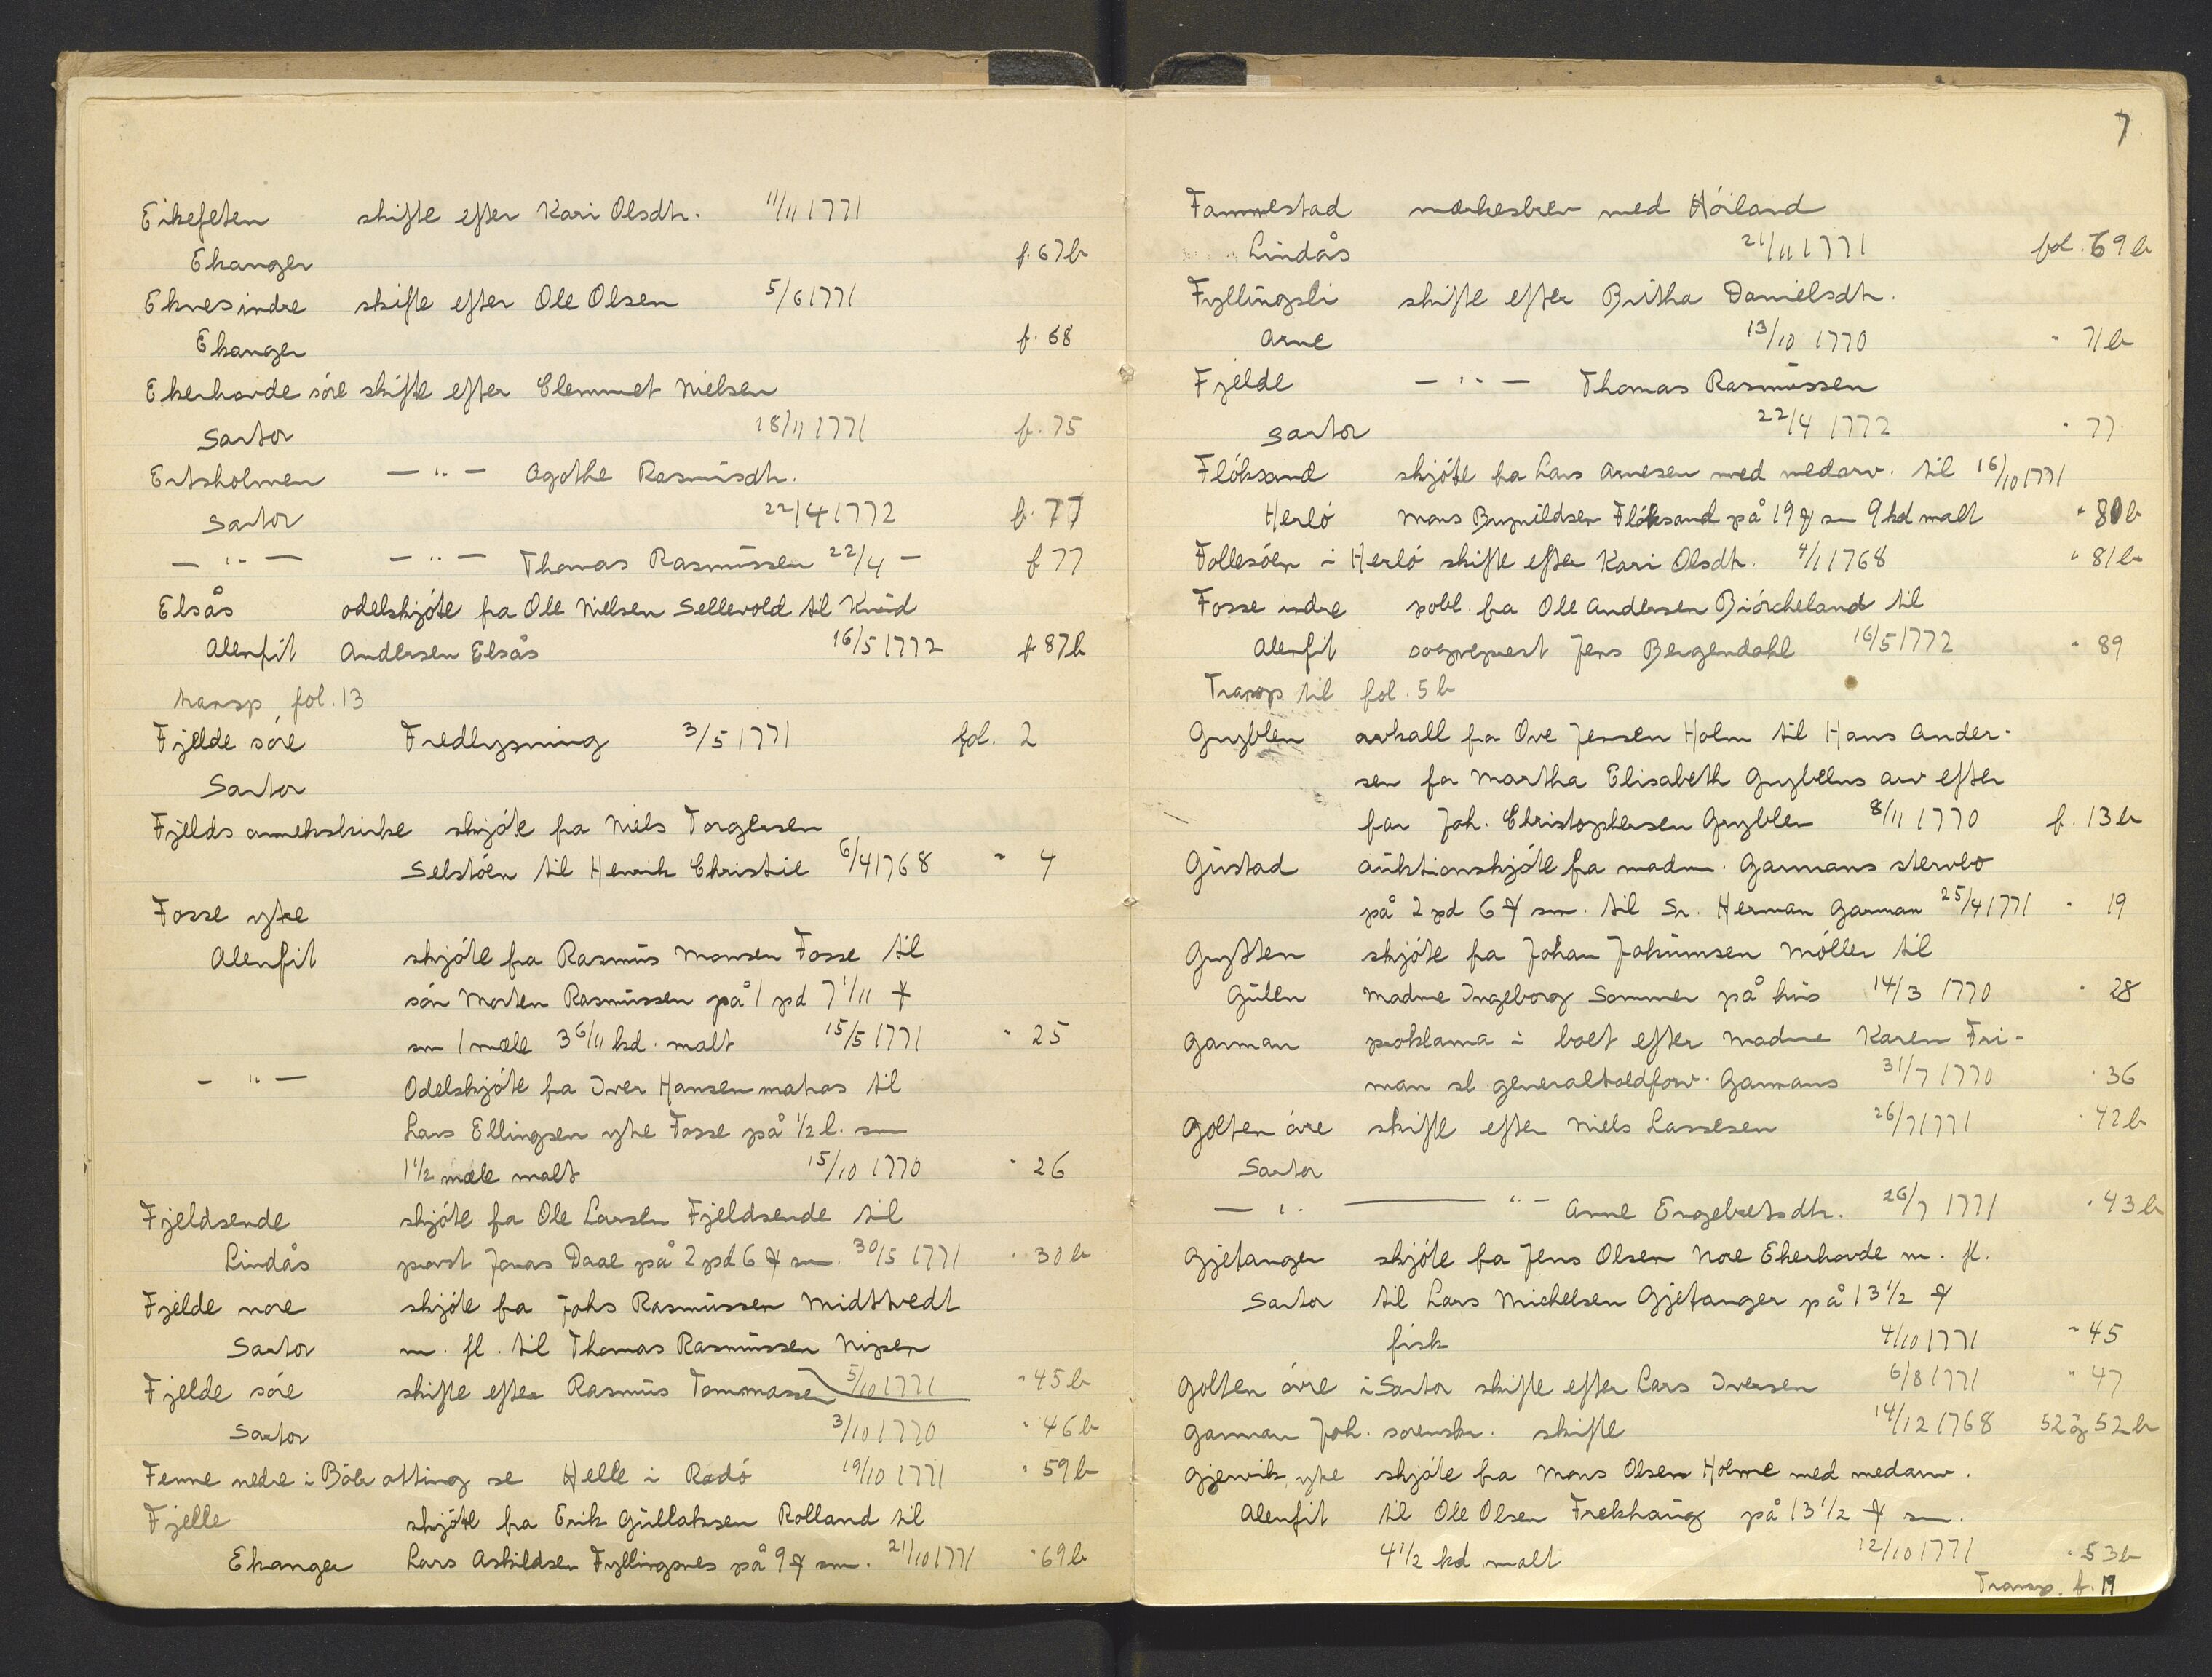 Eikefeten skifte efter Kari Olsdtr. 11/11 1771
Ekanger f. 67b
Eknes indre skifte efter Ole Olsen 5/6 1771
Ekanger f. 68
Ekerhovde söre skifte efter Clemmet Nielsen
Sartor 18/11 1771 f. 75
Ertsholmen — " — Agothe Rasmusdtr.
Sartor 22/4 1772 f. 77
— " — — " — Thomas Rasmussen 22/4 — f 77
Elsås odelskjöte fra Ole Nielsen Sellevold til Knud
Alenfit Andersen Elsås 16/5 1772 f 87b
transp fol. 13
Fjelde söre Fredlysning 3/5 1771 fol. 2
Sartor
Fjelds annekskirke skjöte fra Niels Torgersen
Selstöen til Henrik Christie 6/4 1768 " 4
Fosse ytre
Alenfit skjöte fra Rasmus Monsen Fosse til
sön Morten Rasmussen på 1 pd 7 1/11 ℔
sm 1 mæle 3 6/11 kd. malt 15/5 1771 " 25
— " — Odelskjöte fra Iver Hansen Matras til
Lars Ellingsen ytre Fosse på 1/2 l. sm
1 1/2 mæle malt 15/10 1770 " 26
Fjeldsende skjöte fra Ole Larsen Fjeldsende til
Lindås provst Jonas Daae på 2 pd 6 ℔ sm. 30/5 1771 " 30b
Fjelde nore skjöte fra Johs Rasmussen Midttvedt
Sartor m. fl. til Thomas Rasmussen Nipen
Fjelde söre skifte efter Rasmus Tommassen 5/10 1771 " 45b
Sartor 3/10 1770 " 46b
Fenne nedre i Bör otting se Helle i Radö 19/10 1771 " 59b
Fjelle skjöte fra Erik Gullaksen Rolland til
Ekanger Lars Askildsen Fyllingsnes på 9 ℔ sm. 21/10 1771 " 69b
7
Fammestad merkesbrev med Höiland
Lindås 21/11 1771 fol. 69b
Fyllingsli skifte efter Britha Danielsdtr.
Arne 13/10 1770 " 71b
Fjelde — " — Thomas Rasmussen
Sartor 22/4 1772 " 77
Flöksand skjöte fra Lars Arnesen med medarv. til 16/10 1771
Herlö Mons Brynildsen Flöksand på 19 ℔ sm 9 kd malt " 80b
Follesöen i Herlö skifte efter Kari Olsdtr. 4/1 1768 " 81b
Fosse indre pobl. fra Ole Andersen Biörcheland til
Alenfit sogneprest Jens Bergendahl 16/5 1772 " 89
Transp til fol. 5b
Gryblen avkall fra Ove Jensen Holm til Hans Ander-
sen for Martha Elisabeth Gryblens arv efter
far Joh. Christophersen Gryblen 8/11 1770 f. 13b
Gustad auktionskjöte fra madm. Garmans stervbo
på 2 pd 6 ℔ sm. til Sr. Herman Garman 25/4 1771 " 19
Grytten skjöte fra Johan Jokumsen Möller til
Gulen Madme Ingeborg Sommer på hus 14/3 1770 " 28
Garman proklama i boet efter Madme Karen Fri-
man sl. generaltoldforv. Garmans 31/7 1770 " 36
Golten övre skifte efter Niels Lassesen 26/7 1771 " 42b
Sartor
— " — " — Anne Engebretsdtr. 26/7 1771 " 43b
Gjetanger skjöte fra Jens Olsen Nore Ekerhovde m. fl.
Sartor til Lars Michelsen Gjetanger på 13 1/2 ℔
fisk 4/10 1771 " 45
Golten övre i Sartor skifte efter Lars Iversen 6/8 1771 " 47
Garman Joh. sorenskr. skifte 14/12 1768 52 og 52b
Gjervik ytre skjöte fra Mons Olsen Holme med medarv.
Alenfit til Ole Olsen Frekhaug på 13 1/2 ℔ sm.
4 1/2 kd malt 12/10 1771 " 53b
Transp. f. 19